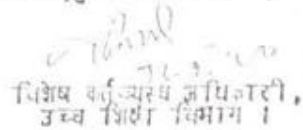 विशेष कर्तव्यस्थ अधिकारी,
उच्च शिक्षा विभाग ।